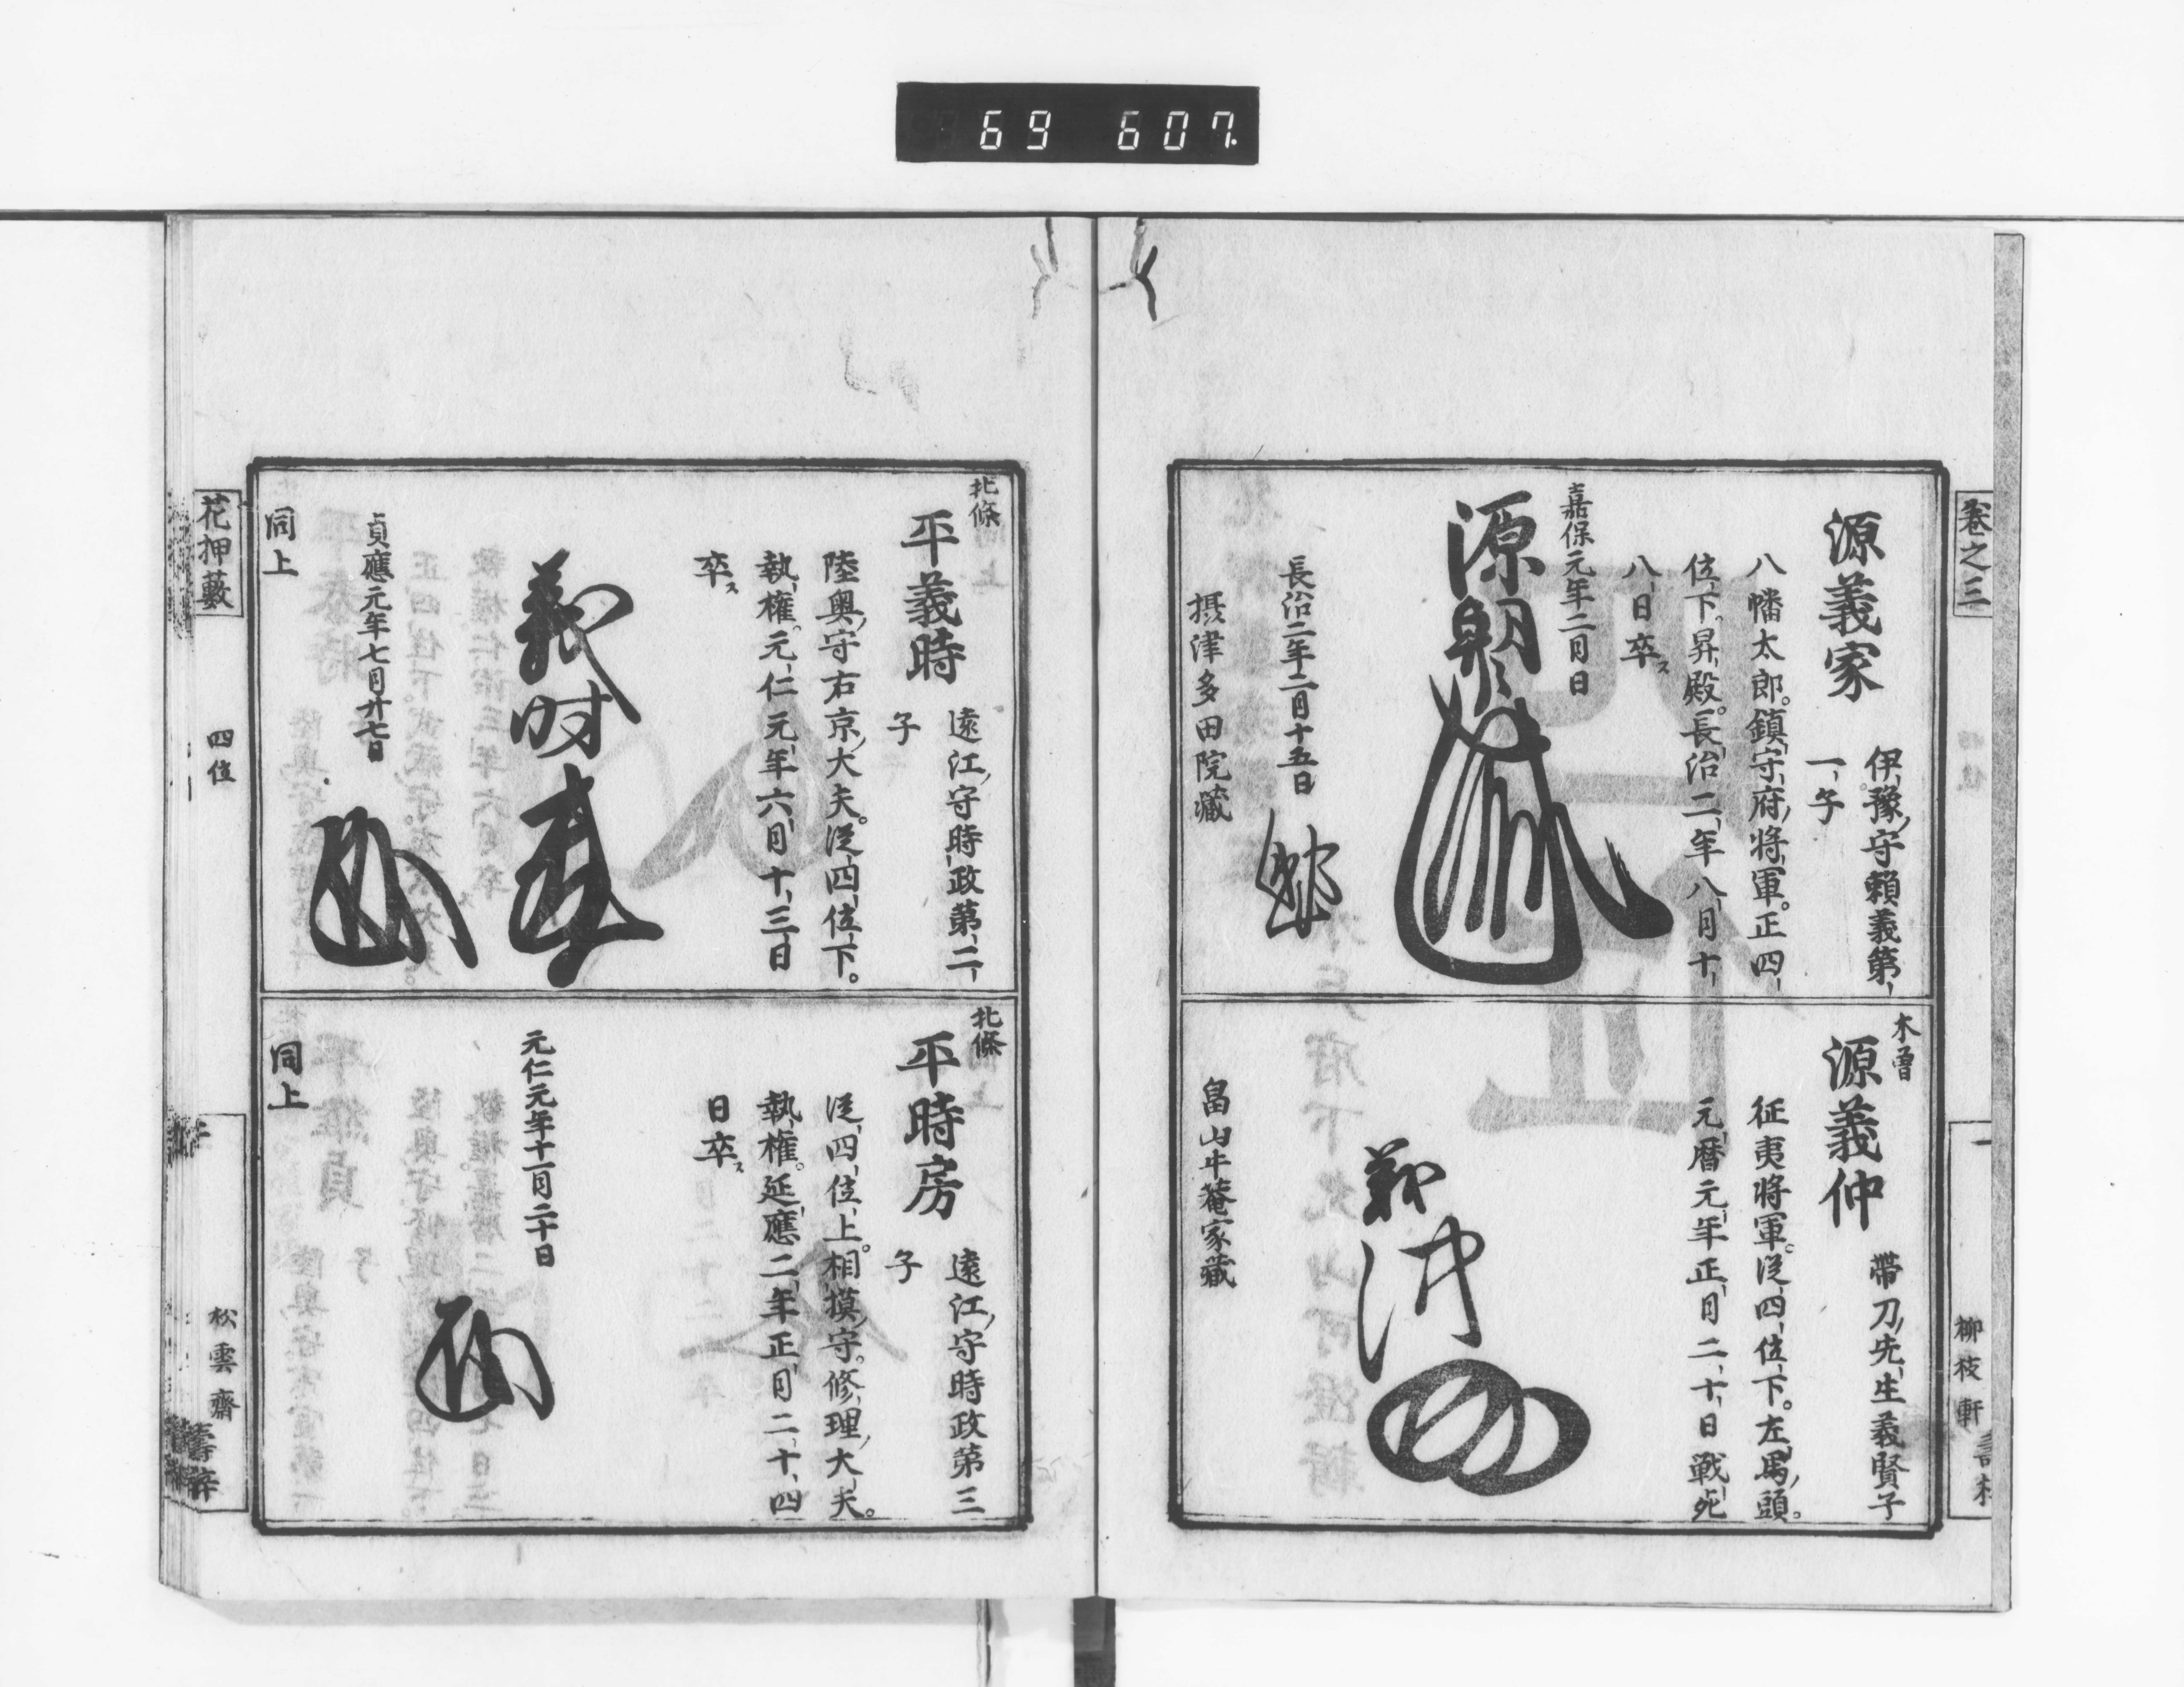 69 607
卷之三
一
柳枝軒
源義家
伊豫守頼義第
一子
八幡太郎。鎮守府将軍。正四
位下。昇殿。長治二年八月十
八日卒ス
嘉保元年二月日
源朝臣
長治二年二月十五日
摂津多田院藏
木曽
源義仲
帶刀先生義賢子
征夷将軍。従四位下。左馬頭。
元暦元年正月二十日戦死
義仲
畠山牛菴家藏
北條
平義時
遠江守時政第二
子
陸奥守右京大夫。従四位下。
執權。元仁元年六月十三日
卒ス
義時
貞應元年七月廿七日
同上
北條
平時房
遠江守時政第三
子
従四位上。相摸守。修理大夫。
執權。延應二年正月二十四
日卒ス
元仁元年十一月二十日
同上
花押藪
四位
松雲齋